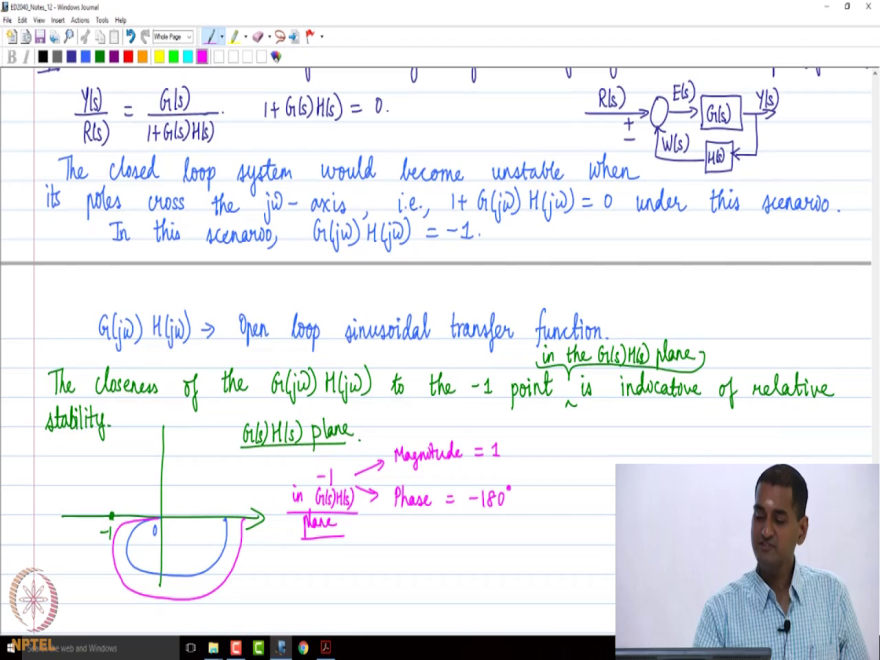 ED2040_Notes_12 - Windows Journal
File Edit View Insert Actions Tools Help
Whole Page
B I
Y(s)/R(s) = G(s)/(1+G(s)H(s)). 1+G(s)H(s) = 0.
R(s) E(s) G(s) Y(s)
+
-
W(s) H(s)
The closed loop system would become unstable when
its poles cross the jω-axis, i.e., 1+G(jω)H(jω) = 0 under this scenario.
In this scenario, G(jω)H(jω) = -1.
G(jω) H(jω) → Open loop sinusoidal transfer function.
in the G(s)H(s) plane
The closeness of the G(jω)H(jω) to the -1 point is indicative of relative
stability.
G(s)H(s) plane.
-1 0
-1
in G(s)H(s)
plane
Magnitude = 1
Phase = -180°
NPTEL
Search the web and Windows